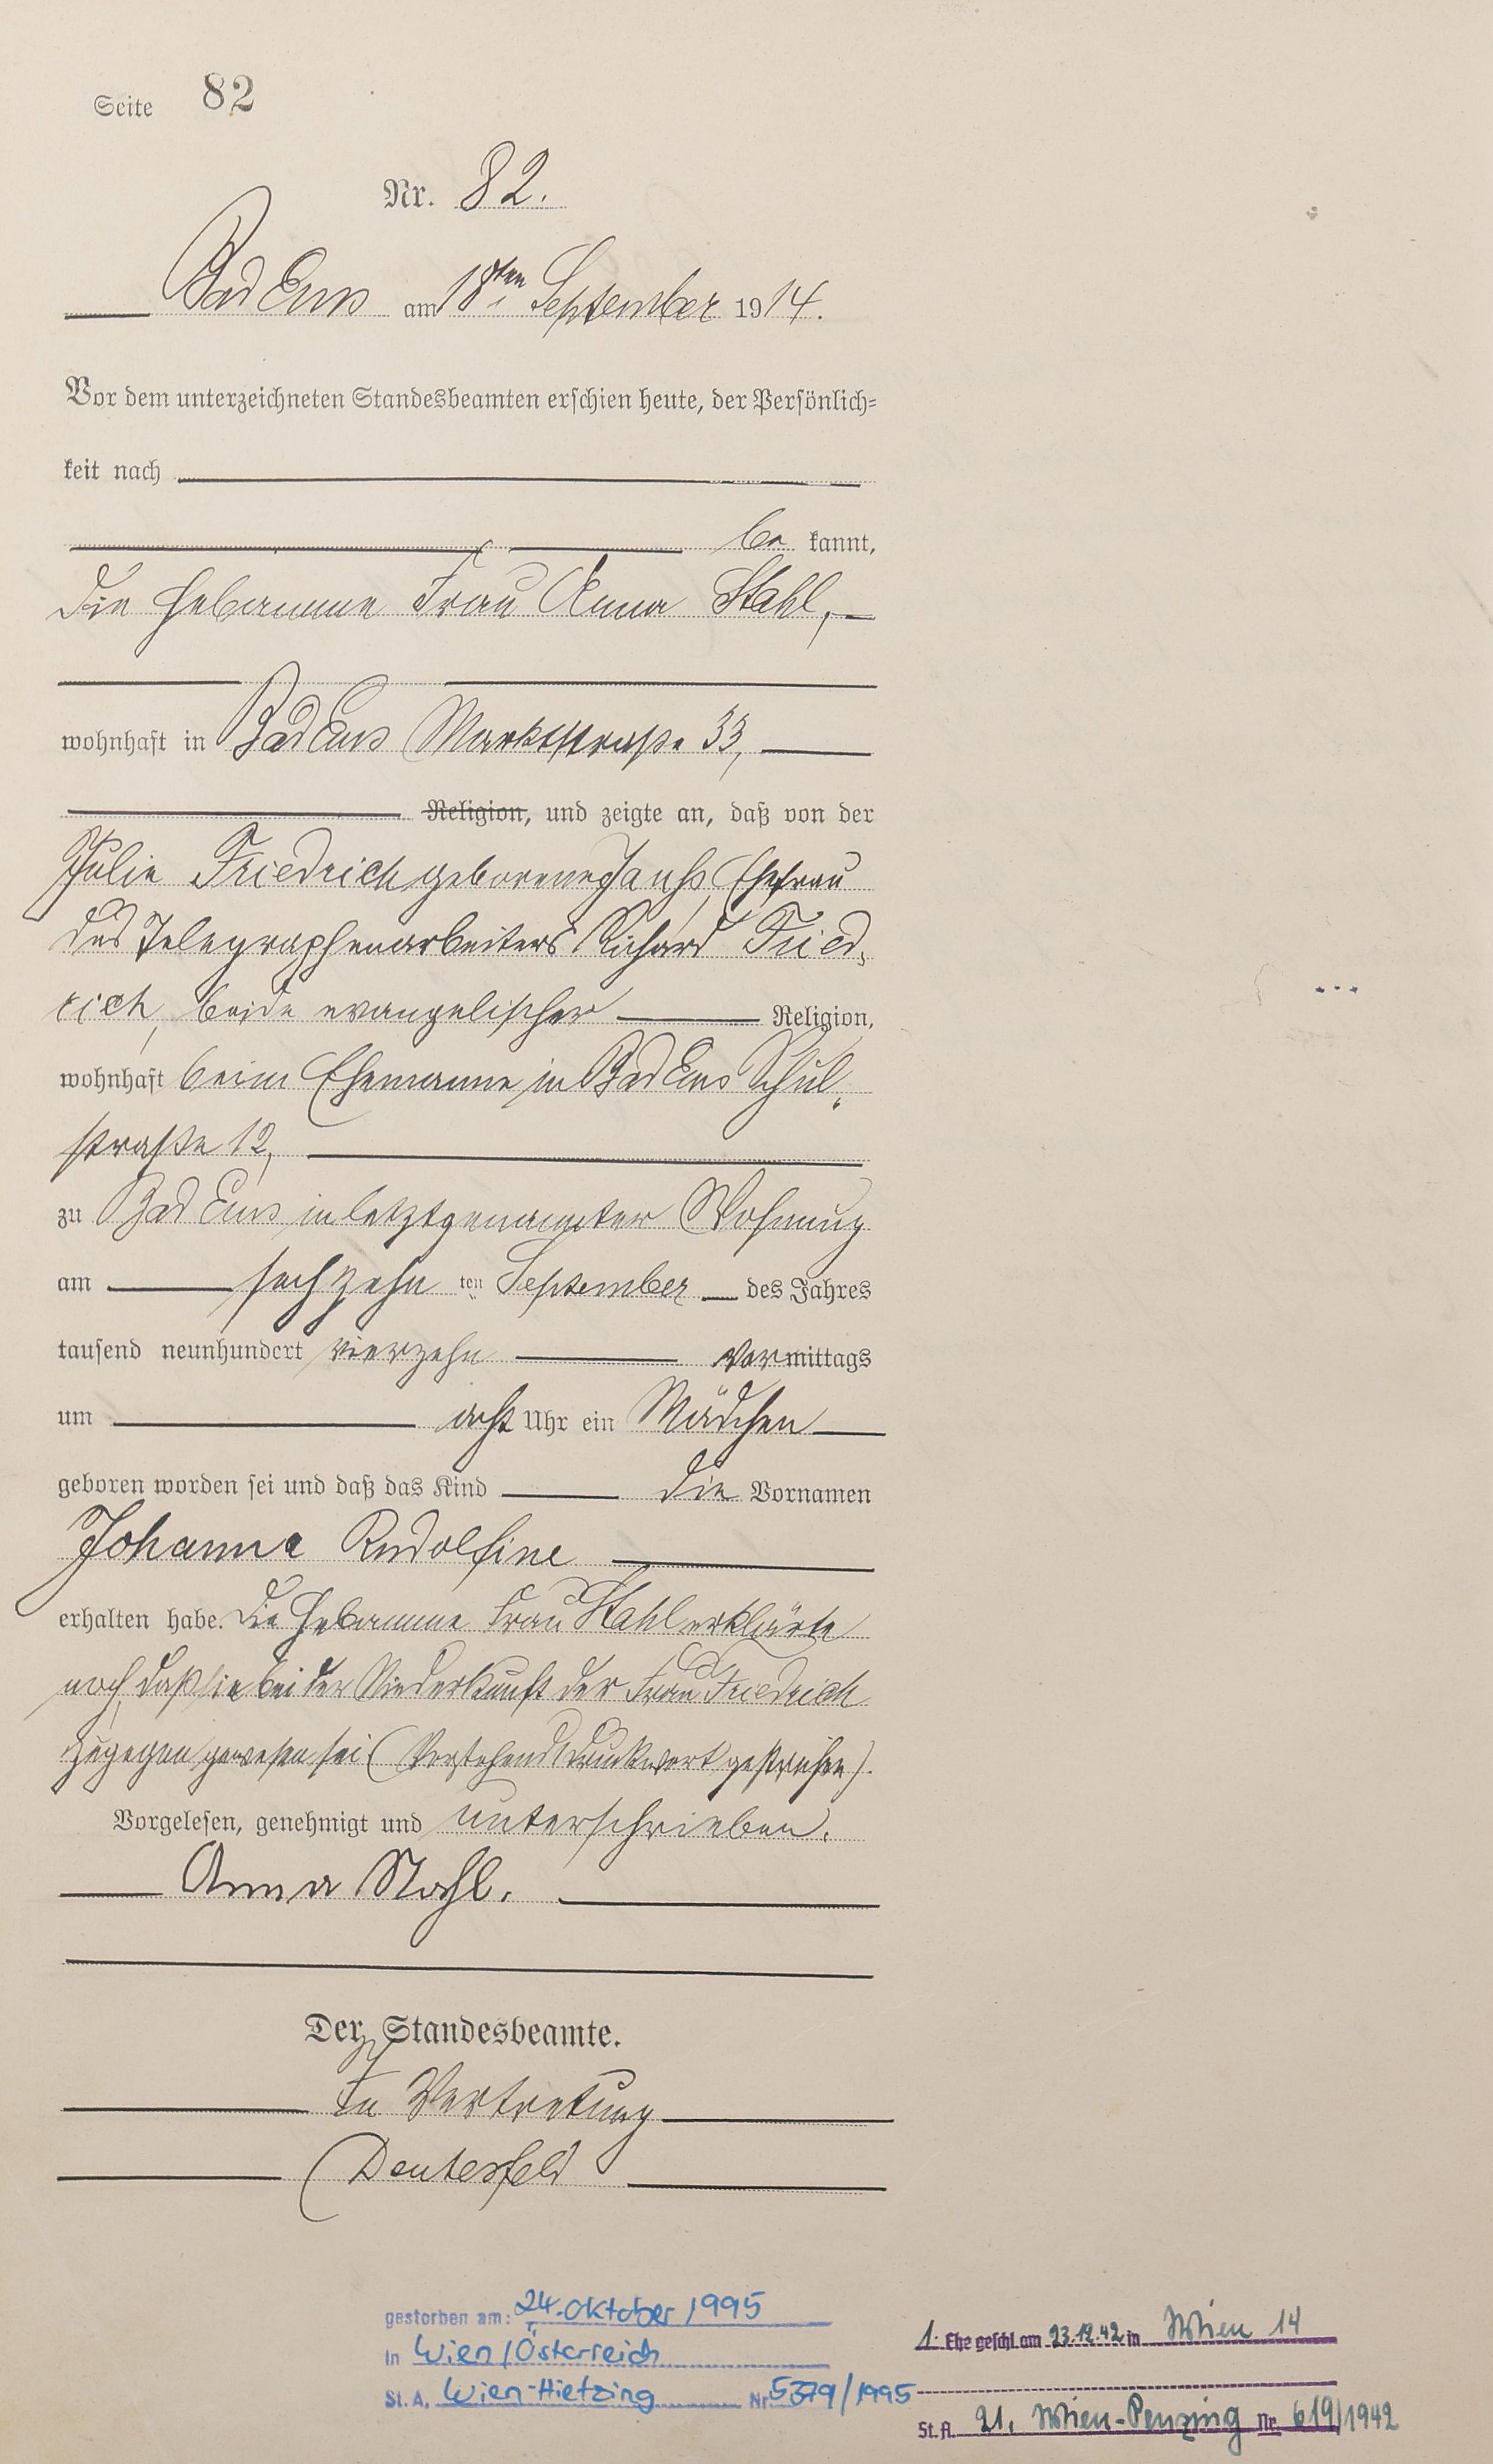 Seite 82
Nr. 82.
Bad Ems am 18ten September 1914.
Vor dem unterzeichneten Standesbeamten erschien heute, der Persönlich-
keit nach
be kannt,
die Hebamme Frau Anna Stahl,
wohnhaft in Bad Ems Marktstraße 33,
Religion, und zeigte an, daß von der
Julie Friedrich geborene Ehefrau
des Telegraphenarbeiters Richard Fried-
rich, beide evangelischer Religion,
wohnhaft beim Ehemanne in Bad Ems Schul-
straße 12,
zu Bad Ems in letztgenannter Wohnung
am sechzehn ten September des Jahres
tausend neunhundert vierzehn vormittags
um acht Uhr ein Mädchen
geboren worden sei und daß das Kind die Vornamen
Johanna Rudolfine
erhalten habe. Die Hebamme Frau Stahl erklärte
noch, daß sie bei der Niederkunft der Frau Friedrich
zugegen gewesen sei (Vorstehend Druckwort gestrichen).
Vorgelesen, genehmigt und unterschrieben.
Anna Stahl.
Der Standesbeamte.
In Vertretung
Deutesfeld
gestorben am: 24. Oktober 1995
in Wien/Österreich
St. A. Wien-Hietzing Nr 5379/1995
1. Ehe geschl. am 23.12.42 in Wien 14
St. A. 21, Wien-Penzing Nr. 619/1942